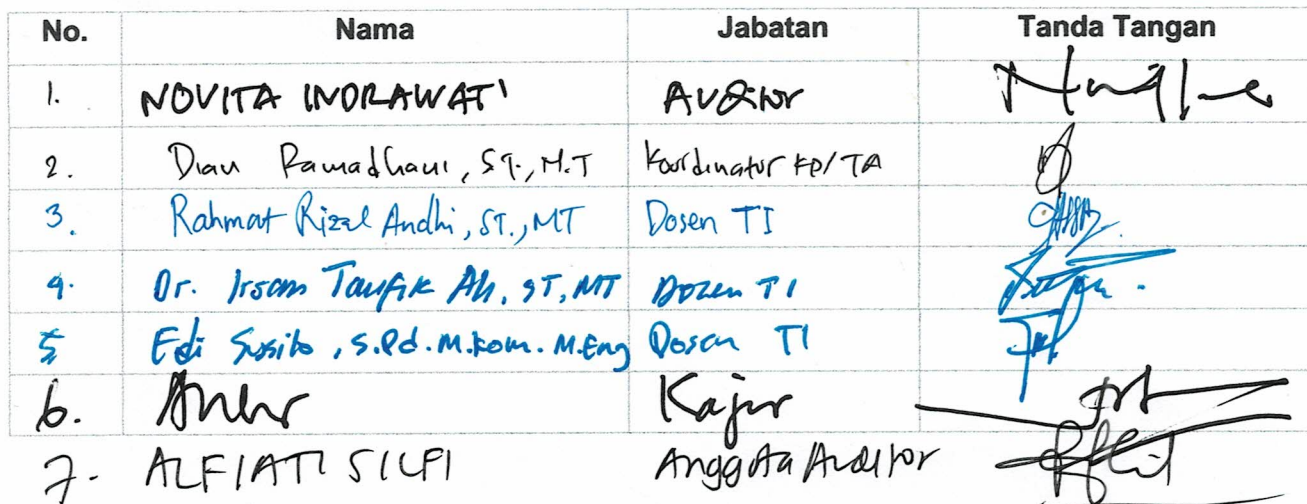 No. Nama Jabatan Tanda Tangan
1. NOVITA INDRAWATI Auditor
2. Dian Ramadhani, ST., M.T Koordinator KP/TA
3. Rahmat Rizal Andhi, ST., MT Dosen TI
4. Dr. Irsan Taufik Ali, ST, MT Dosen TI
5 Edi Susilo, S.Pd. M.Kom. M.Eng Dosen TI
6. Kajur
7. ALFIATI SILFI Anggota Auditor